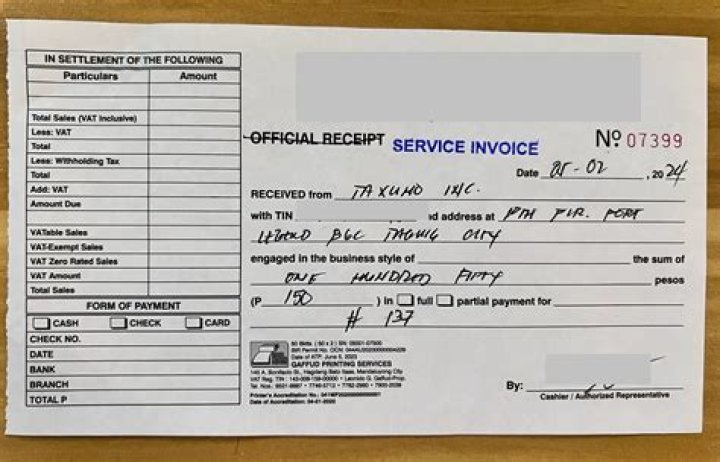 IN SETTLEMENT OF THE FOLLOWING
Particulars Amount
Total Sales (VAT Inclusive)
Less: VAT
Total
Less: Withholding Tax
Total
Add: VAT
Amount Due
VATable Sales
VAT-Exempt Sales
VAT Zero Rated Sales
VAT Amount
Total Sales
FORM OF PAYMENT
CASH CHECK CARD
CHECK NO.
DATE
BANK
BRANCH
TOTAL P
OFFICIAL RECEIPT SERVICE INVOICE
Nº 07399
Date 05-02, 2024
RECEIVED from TAXUMO INC.
with TIN address at 7TH FLR. PORT
LEGEND BGC TAGUIG CITY
engaged in the business style of the sum of
ONE HUNDRED FIFTY pesos
(P 150 ) in full partial payment for
# 137
50 Bklts. (50 x 2) SN: 05001-07500
Date of ATP: June 5, 2023
GAFFUD PRINTING SERVICES
Date of Accreditation: 04-01-2020
By:
Cashier / Authorized Representative